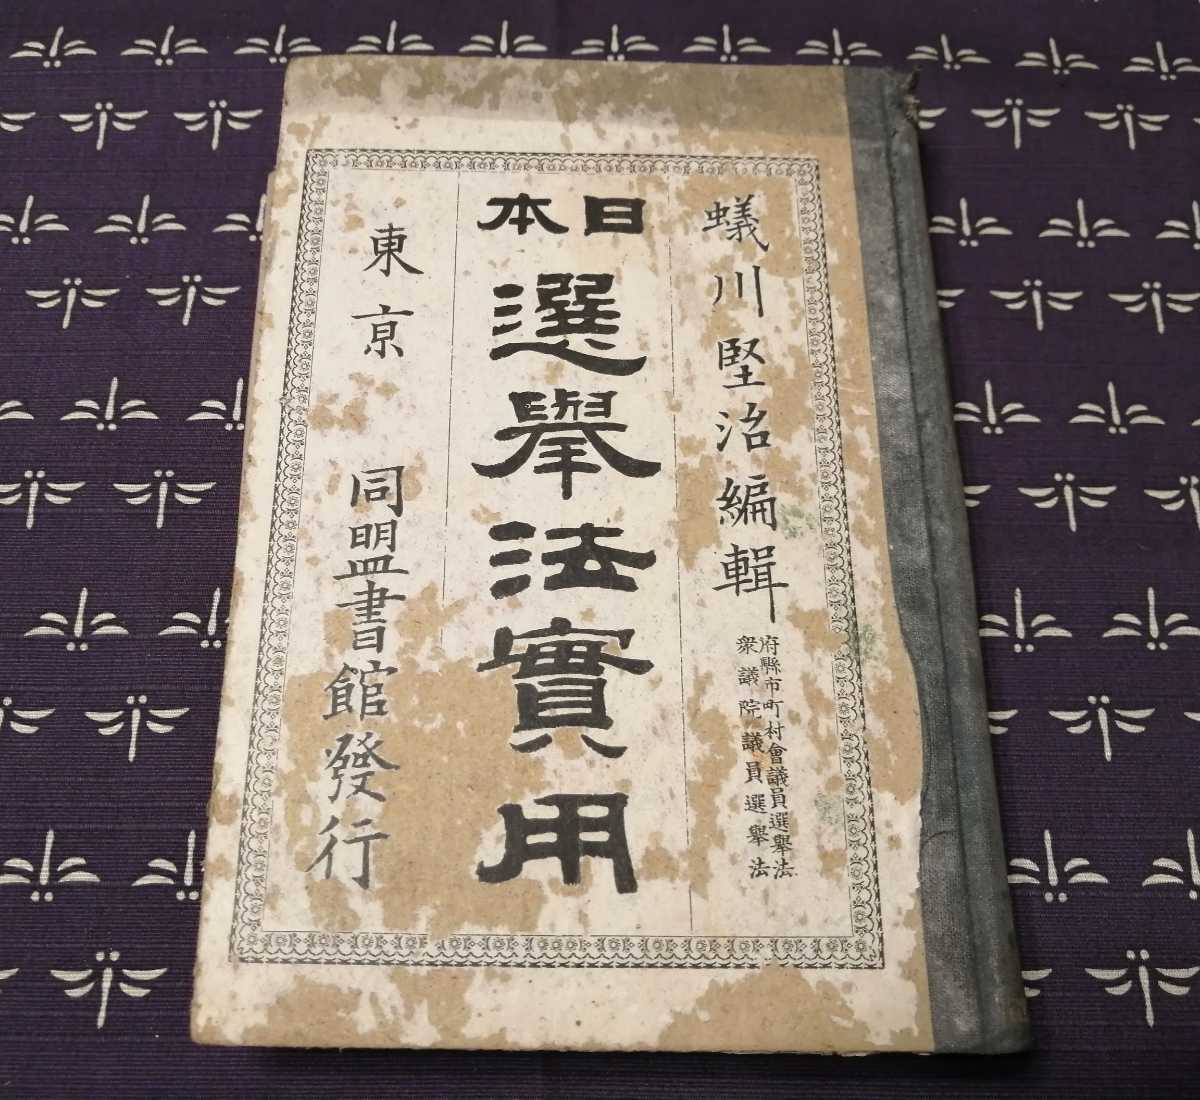 蟻川堅治編輯
府縣市町村會議員選擧法
衆議院議員選擧法
日本
選擧法實用
東京
同盟書館發行